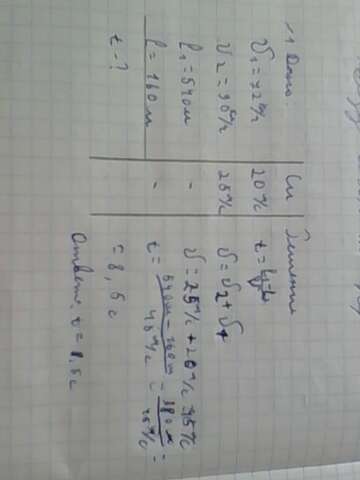 №1 Дано
V₁ = 72 км/ч
V₂ = 90 км/ч
l₁ = 540 м
l = 160 м
t - ?
Си
20 м/с
25 м/с
-
-
Решение
t =
V = V₂ + V₁
V = 25 м/с + 20 м/с 45 м/с
t = 540 м - 160 м / 45 м/с = 380 м / 45 м/с =
= 8,5 с
Ответ: t = 8,5 с